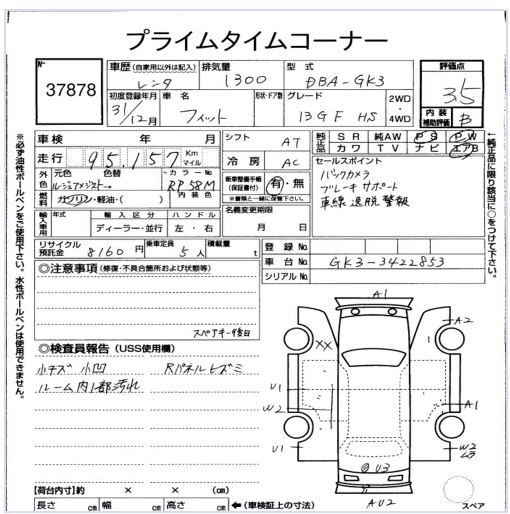 プライムタイムコーナー
No 37878
車歴(自家用以外は記入) レンタ
排気量 1300
型式 DBA-GK3
評価点 3.5
初度登録年月 31/12月
車名 フィット
形状・ドア数
グレード 13GF HS
2WD・4WD
内装補助評価 B
車検 年 月
シフト AT
純正品 SR 純AW PS PW
カワ TV ナビ エアB
走行 95,157 Km マイル
冷房 AC
セールスポイント
バックカメラ
ブレーキサポート
車線逸脱警報
外色 元色 ルージュアメジスト 色替
カラーNo. RP58M
内装色
新車整備手帳(保証書付) 有・無
※書類と一緒に保管して下さい。
燃料 ガソリン・軽油・( )
名義変更期限 月 日
輸入車用 年式
輸入区分 ディーラー・並行
ハンドル 左・右
リサイクル預託金 8160円
乗車定員 5人
積載量 t
登録No.
車台No. GK3-3422853
シリアルNo.
◎注意事項(修復・不具合箇所および状態等)
スペアキー後日
◎検査員報告(USS使用欄)
小キズ 小凹 Rパネルヒズミ
ルーム内上部汚れ
A1
A2
XX
U1
W2
A1
U1
W2
U3
AU2
スペア
【荷台内寸】約 × × (cm)
長さ cm 幅 cm 高さ cm ←(車検証上の寸法)
※必ず油性ボールペンをご使用下さい。水性ボールペンは使用できません。
←純正品に限り該当に○をつけて下さい。